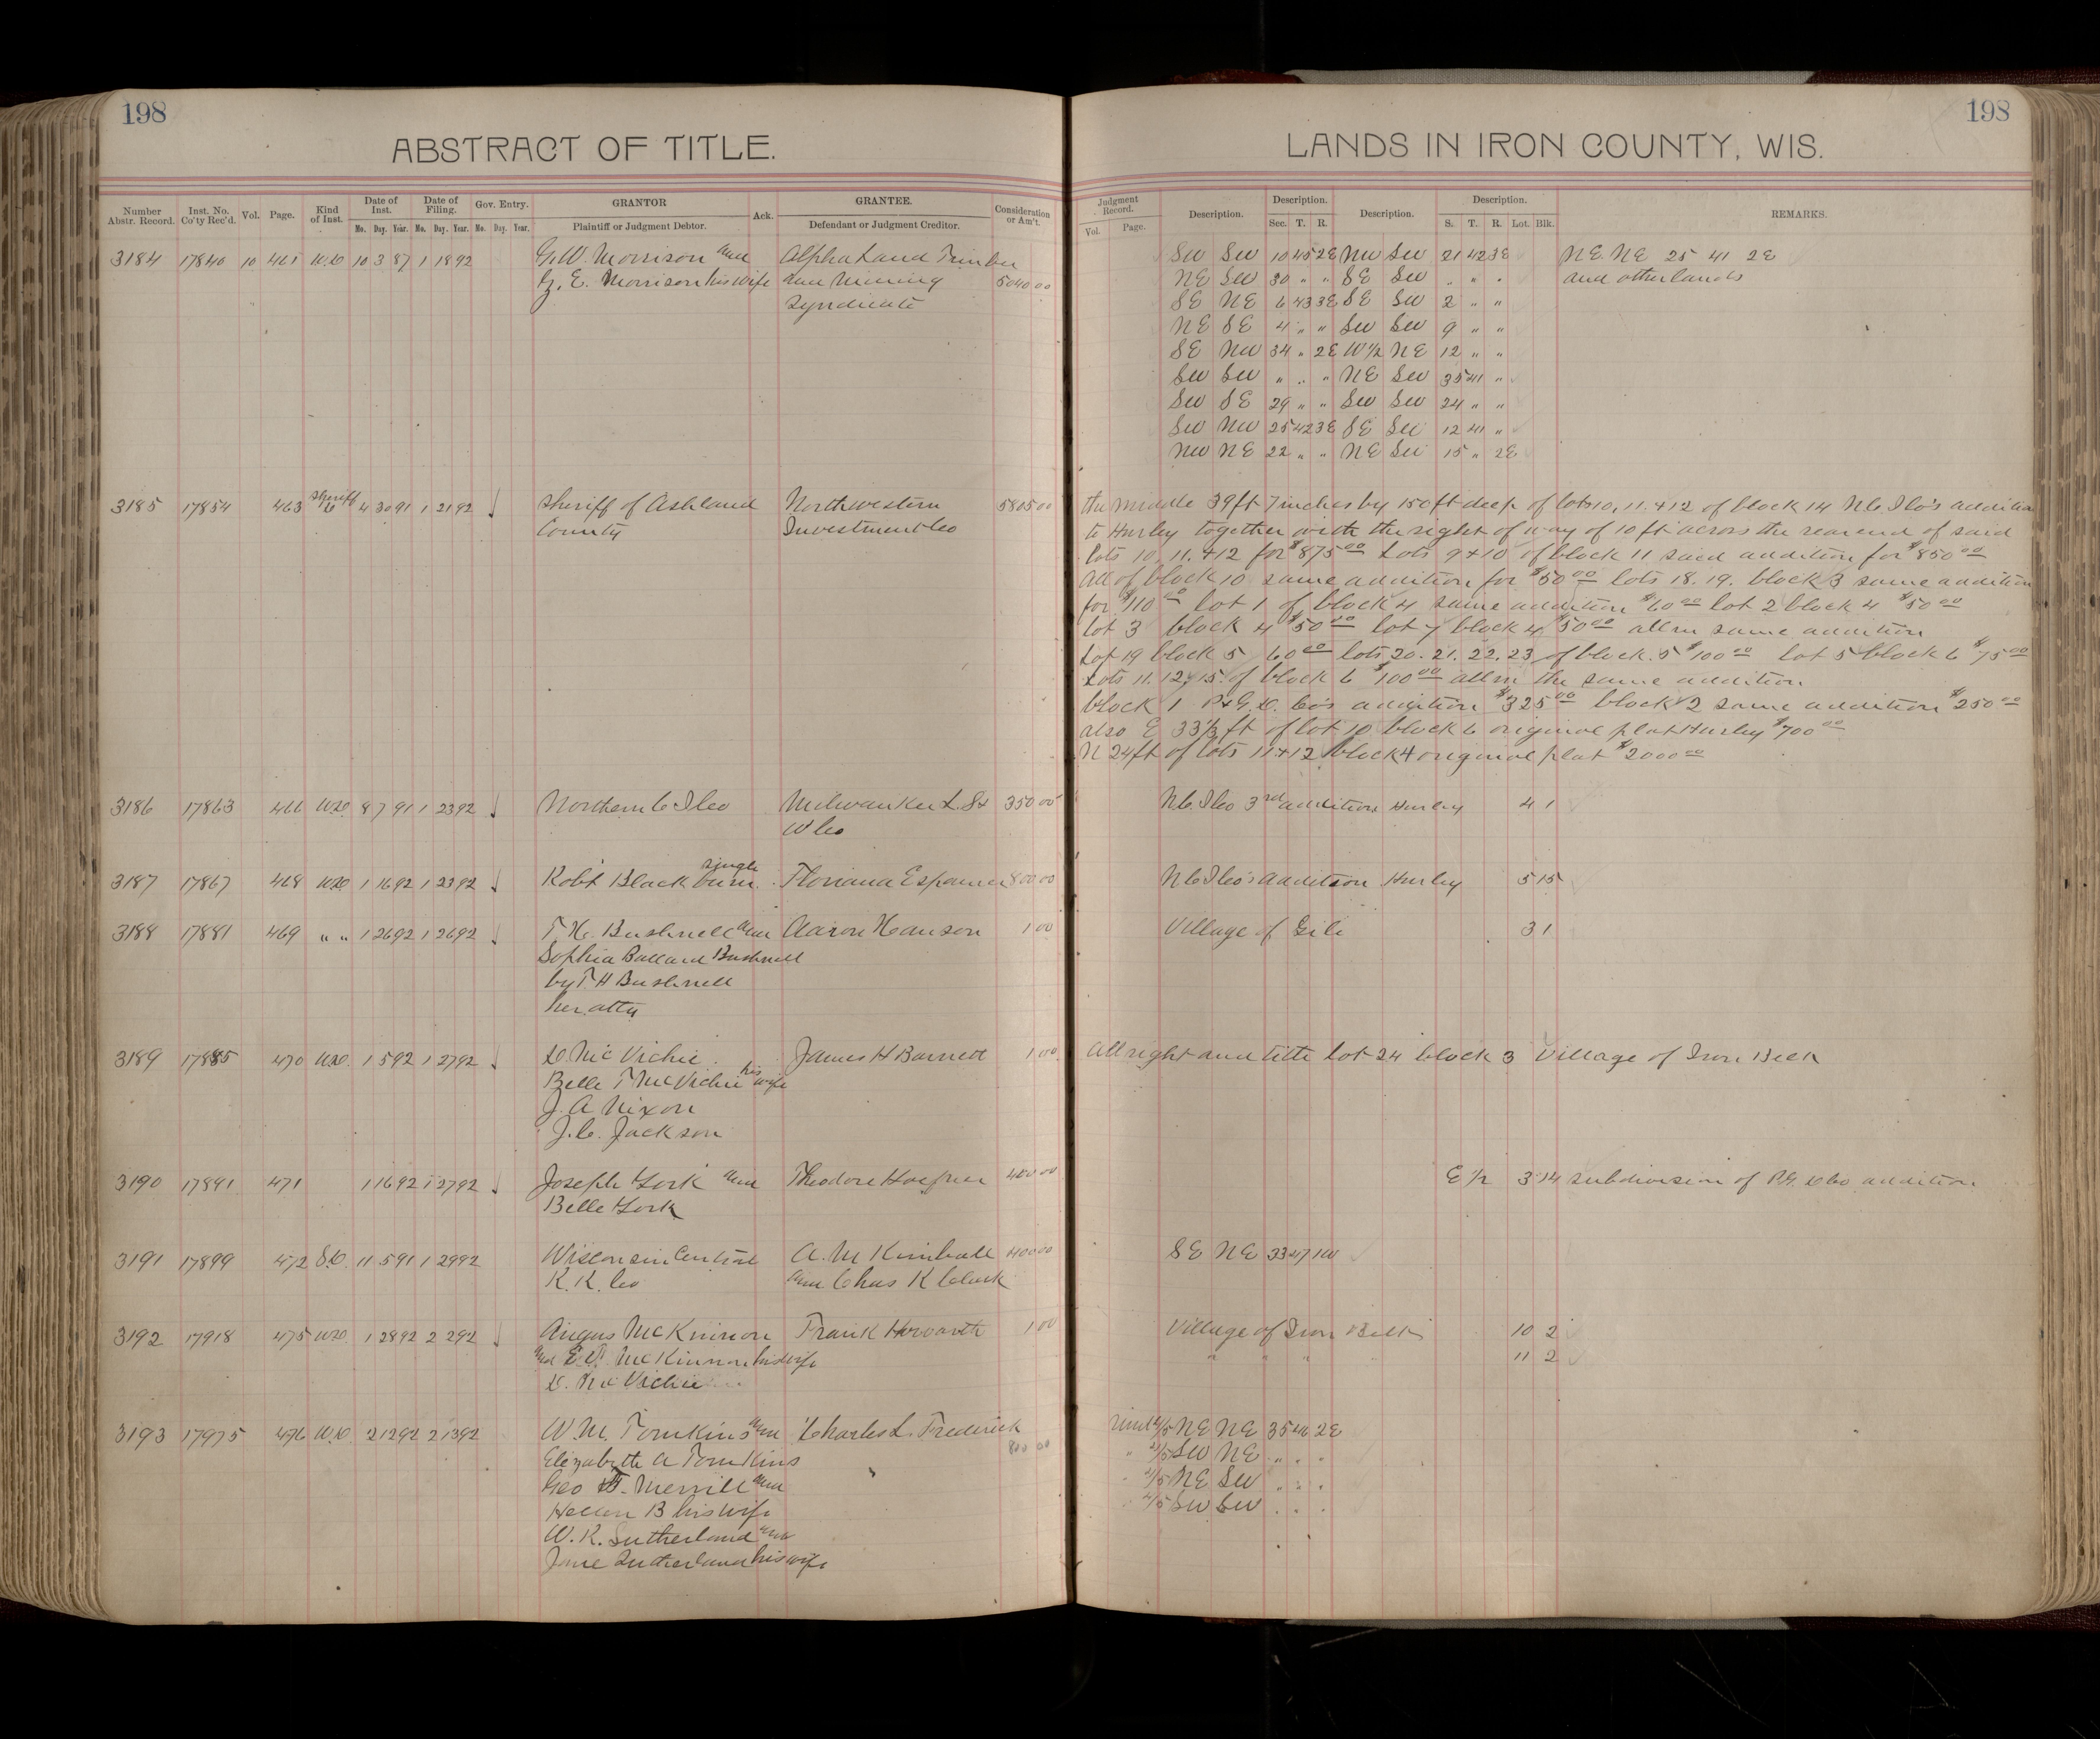 198
198
ABSTRACT OF TITLE.
LANDS IN IRON COUNTY, WIS.
Number Abstr. Record. Inst. No. Co'ty Rec'd. Vol. Page. Kind of Inst. Date of Inst. Date of Filing. Gov. Entry. GRANTOR Ack. GRANTEE. Consideration or Am't.
Mo. Day. Year. Mo. Day. Year. Mo. Day. Year. Plaintiff or Judgment Debtor. Defendant or Judgment Creditor.
Judgment Record. Description. Description. Description. Description. REMARKS.
Vol. Page. Sec. T. R. S. T. R. Lot. Blk.
3184 17840 10 461 W.D 10 3 87 1 18 92 G.W. Morrison and Alpha Land Timber
G. E. Morrison his wife and Mining 5040 00
Syndicate
SW SW 10 45 2E NW SW 21 42 3E NE NE 25 41 2E
NE SW 30 " " SE SW " " " and other lands
SE NE 6 43 3E SE SW 2 " "
NE SE 4 " " SW SW 9 " "
SE NW 34 " 2E W1/2 NE 12 " "
SW SW " " " NE SW 35 41 "
SW SE 29 " " SW SW 24 " "
SW NW 25 42 3E SE SW 12 41 "
NW NE 22 " " NE SW 15 " 2E
3185 17854 463 Sheriff D 4 30 91 1 21 92 Sheriff of Ashland Northwestern 5805 00
County Investment Co
the middle 39 ft 7 inches by 150 ft deep of lots 10, 11, + 12 of block 14 N.C. I Co's addition
to Hurley together with the right of way of 10 ft across the rear end of said
lots 10, 11, + 12 for $875 00 Lots 9 + 10 of block 11 said addition for $850 00
All of block 10 same addition for $50 00 lots 18. 19. block 3 same addition
for $110 00 lot 1 of block 4 same addition $60 00 lot 2 block 4 $50 00
lot 3 block 4 $50 00 lot 7 block 4 $50 00 all in same addition
Lot 19 block 5 60 00 lots 20. 21. 22. 23 of block 5 $100 00 lot 5 block 6 $75 00
Lots 11. 12, 15. of block 6 $100 00 all in the same addition
block 1 P.&G. D. Co's addition $325 00 block 2 same addition $250 00
also E 33 1/3 ft of lot 10 block 6 original plat Hurley $700 00
N 24 ft of lots 11 + 12 block 4 original plat $2000 00
3186 17863 466 W.D. 8 7 91 1 23 92 Northern C I Co Milwaukee L. S + 350 00 N.C. I Co 3rd addition Hurley 4 1
W Co
3187 17867 468 W.D 1 16 92 1 23 92 Rob't Blackburn single Floriana 800 00 N C I Co's addition Hurley 5 15
3188 17881 469 " " 1 26 92 1 26 92 T.H. Bushnell and Aaron Hanson 1 00 Village of Gile 3 1
Sophia Ballard Bushnell
by T. H Bushnell
her atty
3189 17885 470 W.D. 1 5 92 1 27 92 D. McVichie James H Barnett 1 00 All right and title Lot 24 block 3 Village of Iron Belt
Belle T McVichie his wife
J. A Nixon
J. C. Jackson
3190 17891 471 1 16 92 1 27 92 Joseph York and Theodore Hoefner E 1/2 3 14 subdivision of P.G. D Co addition
Belle York
3191 17899 472 S.D. 11 5 91 1 29 92 Wisconsin Central A. M Kimball 400 00 SE NE 33 47 1W
R. R. Co and Chas K Clark
3192 17918 475 W.D. 1 28 92 2 2 92 Angus McKinnon Frank Howarth 1 00 Village of Iron Belt 10 2
and E. D. McKinnon his wife " " " 11 2
D. McVichie
3193 17975 476 W.D. 2 12 92 2 13 92 W. M. Tomkins and Charles L. Frederick Und 2/5 NE NE 35 46 2E
Elizabeth A Tomkins 800 00 " 2/5 SW NE " " "
Geo F. Merrill and " 2/5 NE SW " " "
Hellen B his wife " 2/5 SW SW " " "
W. R. Sutherland and
Jane Sutherland his wife